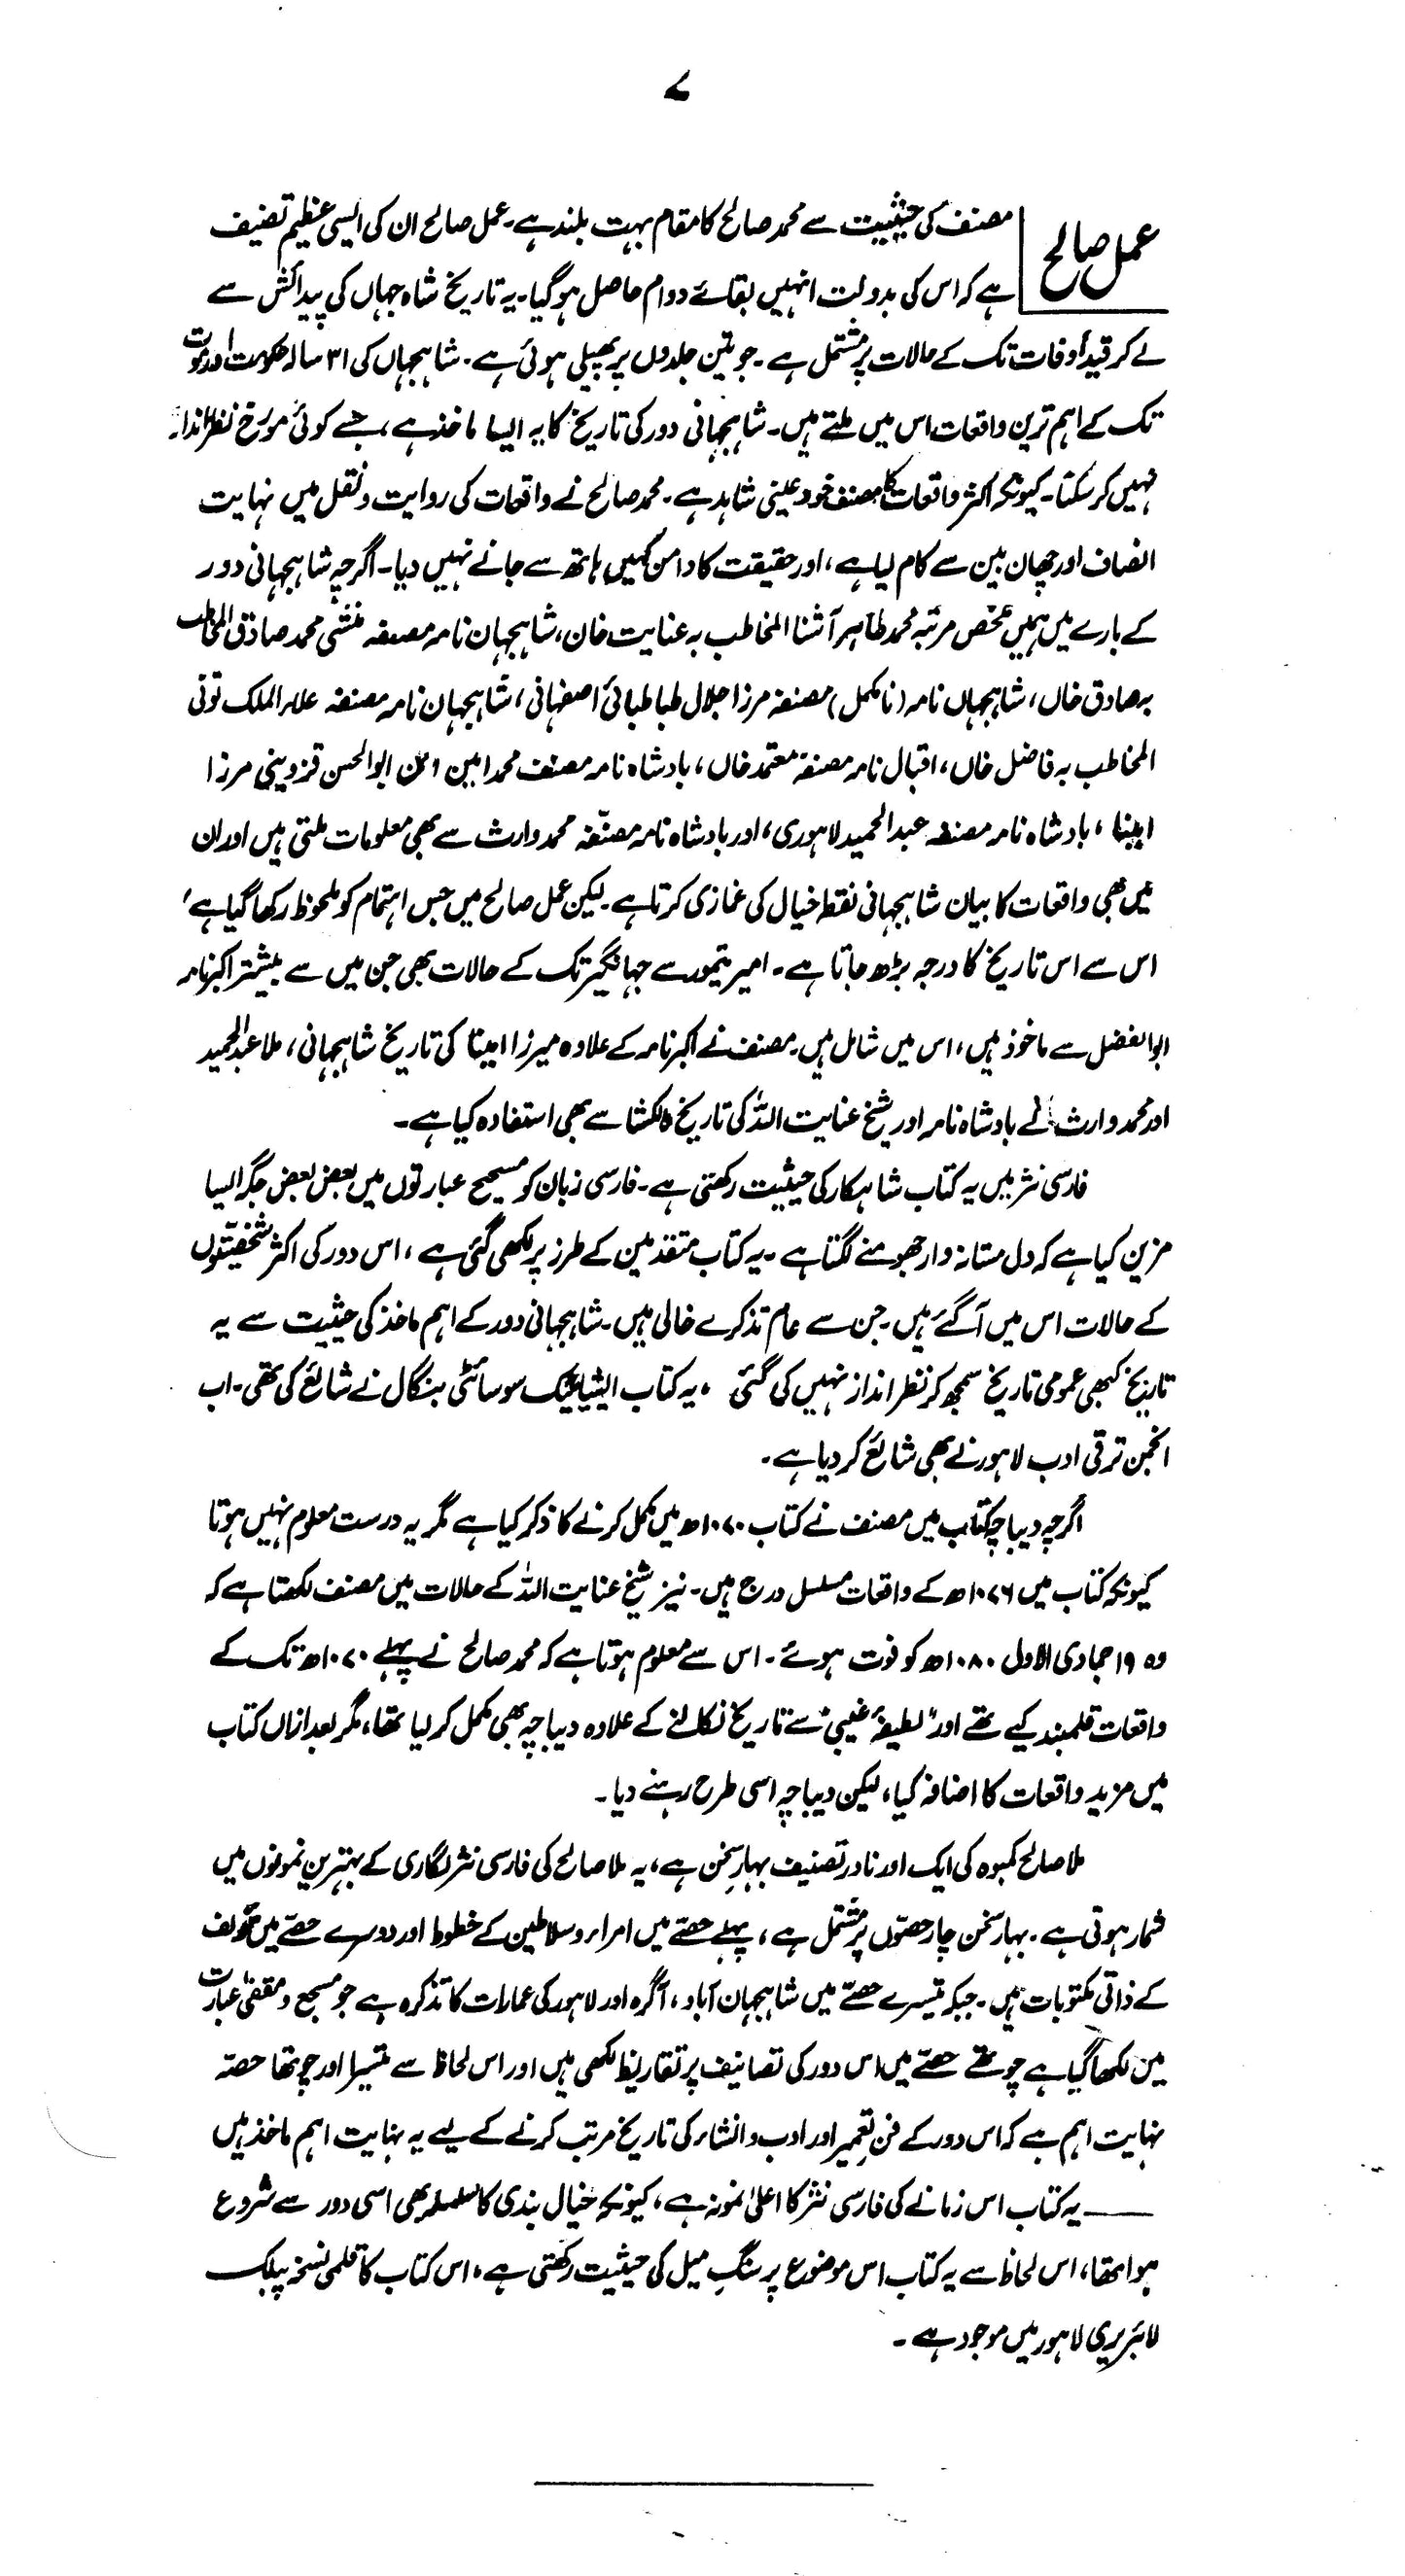 ۷
عمل صالح
مصنف کی حیثیت سے محمد صالح کا مقام بہت بلند ہے۔ عمل صالح ان کی ایسی عظیم تصنیف
ہے کہ اس کی بدولت انہیں بقائے دوام حاصل ہو گیا۔ یہ تاریخ شاہ جہاں کی پیدائش سے
لے کر قید و وفات تک کے حالات پر مشتمل ہے۔ جو تین جلدوں پر پھیلی ہوئی ہے۔ شاہجہاں کی ۳۱ سالہ حکومت اور موت
تک کے اہم ترین واقعات اس میں ملتے ہیں۔ شاہجہانی دور کی تاریخ کا یہ ایسا ماخذ ہے، جسے کوئی مورخ نظر انداز
نہیں کر سکتا۔ کیونکہ اکثر واقعات کا مصنف خود عینی شاہد ہے۔ محمد صالح نے واقعات کی روایت و نقل میں نہایت
انصاف اور چھان بین سے کام لیا ہے، اور حقیقت کا دامن کہیں ہاتھ سے جانے نہیں دیا۔ اگرچہ شاہجہانی دور
کے بارے میں ہمیں ملخص مرتبہ محمد طاہر آشنا المخاطب بہ عنایت خان، شاہجہان نامہ مصنفہ منشی محمد صادق المخاطب
بہ صادق خاں، شاہجہاں نامہ (نامکمل) مصنفہ مرزا جلال طباطبائی اصفہانی، شاہجہان نامہ مصنفہ علاء الملک تونی
المخاطب بہ فاضل خاں، اقبال نامہ مصنفہ معتمد خاں، بادشاہ نامہ مصنف محمد امین ابن ابوالحسن قزوینی مرزا
امینا، بادشاہ نامہ مصنفہ عبدالحمید لاہوری، اور بادشاہ نامہ مصنّفہ محمد وارث سے بھی معلومات ملتی ہیں اور ان
میں بھی واقعات کا بیان شاہجہانی نقطہ خیال کی غمازی کرتا ہے۔ لیکن عمل صالح میں جس اہتمام کو ملحوظ رکھا گیا ہے،
اس سے اس تاریخ کا درجہ بڑھ جاتا ہے۔ امیر تیمور سے جہانگیر تک کے حالات بھی جن میں سے بیشتر اکبر نامہ
ابوالفضل سے ماخوذ ہیں، اس میں شامل ہیں۔ مصنف نے اکبر نامہ کے علاوہ میرزا امینا کی تاریخ شاہجہانی، ملا عبدالحمید
اور محمد وارث کے بادشاہ نامہ اور شیخ عنایت اللہ کی تاریخ دلکشا سے بھی استفادہ کیا ہے۔
فارسی نثر میں یہ کتاب شاہکار کی حیثیت رکھتی ہے۔ فارسی زبان کو مسجع عبارتوں میں بعض بعض جگہ ایسا
مزین کیا ہے کہ دل مستانہ وار جھومنے لگتا ہے۔ یہ کتاب متقدمین کے طرز پر لکھی گئی ہے، اس دور کی اکثر شخصیتوں
کے حالات اس میں آگئے ہیں۔ جن سے عام تذکرے خالی ہیں۔ شاہجہانی دور کے اہم ماخذ کی حیثیت سے یہ
تاریخ کبھی عمومی تاریخ سمجھ کر نظر انداز نہیں کی گئی، یہ کتاب ایشیاٹیک سوسائٹی بنگال نے شائع کی تھی۔ اب
انجمن ترقی ادب لاہور نے بھی شائع کر دیا ہے۔
اگرچہ دیباچہ کتاب میں مصنف نے کتاب ۱۰۷۰ھ میں مکمل کرنے کا ذکر کیا ہے مگر یہ درست معلوم نہیں ہوتا
کیونکہ کتاب میں ۱۰۷۶ھ کے واقعات مسلسل درج ہیں۔ نیز شیخ عنایت اللہ کے حالات میں مصنف لکھتا ہے کہ
وہ ۱۹ جمادی الاول ۱۰۸۰ھ کو فوت ہوئے۔ اس سے معلوم ہوتا ہے کہ محمد صالح نے پہلے ۱۰۷۰ھ تک کے
واقعات قلمبند کیے تھے اور "لطیفۂ غیبی" سے تاریخ نکالنے کے علاوہ دیباچہ بھی مکمل کر لیا تھا، مگر بعد ازاں کتاب
میں مزید واقعات کا اضافہ کیا، لیکن دیباچہ اسی طرح رہنے دیا۔
ملا صالح کمبوہ کی ایک اور نادر تصنیف بہارِ سخن ہے، یہ ملا صالح کی فارسی نثر نگاری کے بہترین نمونوں میں
شمار ہوتی ہے۔ بہار سخن چار حصّوں پر مشتمل ہے، پہلے حصّے میں امراء و سلاطین کے خطوط اور دوسرے حصّے میں مؤلف
کے ذاتی مکتوبات ہیں۔ جبکہ تیسرے حصّے میں شاہجہان آباد، آگرہ اور لاہور کی عمارات کا تذکرہ ہے جو مسجع و مقفیٰ عبارت
میں لکھا گیا ہے چوتھے حصّے میں اس دور کی تصانیف پر تقاریظ لکھی ہیں اور اس لحاظ سے تیسرا اور چوتھا حصّہ
نہایت اہم ہے کہ اس دور کے فن تعمیر اور ادب و انشاء کی تاریخ مرتب کرنے کے لیے یہ نہایت اہم ماخذ ہیں
ــــ یہ کتاب اس زمانے کی فارسی نثر کا اعلیٰ نمونہ ہے، کیونکہ خیال بندی کا سلسلہ بھی اسی دور سے شروع
ہوا تھا، اس لحاظ سے یہ کتاب اس موضوع پر سنگِ میل کی حیثیت رکھتی ہے، اس کتاب کا قلمی نسخہ پبلک
لائبریری لاہور میں موجود ہے۔